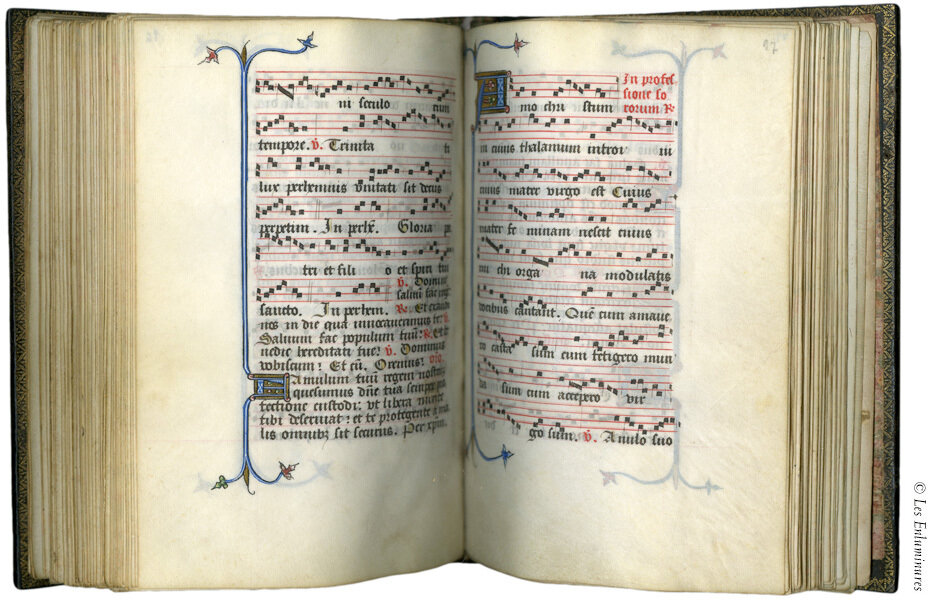 ni seculo rum
tempore. v̄. Trinita ti
lux perhennis vnitati sit decus
perpetim. In perhē. Gloria pa
tri et fili o et spiri tui
v̄. Domine
saluū fac
sancto. In perhem. R̄. Et
nos in die qua inuocauerimus te.
Saluum fac populum tuū. R̄. Et be
nedic hereditati tue. v̄. Dominus
vobiscum. Et cū. Oremus. oro
amulum tuū regem nostrū
quesumus dn̄e tua semper pro
tectione custodi. vt libera mente
tibi deseruiat. et te protegente a ma
lis omnibꝫ sit securus. Per xpm̄.
97
In profes
sione so
rorum R̄
mo chri stum
in cuius thalamum introi ui
cuius mater virgo est Cuius
mater fe minam nescit cuius
mi chi orga na modulatis
vocibus cantant. Quē cum amaue
ro casta sum cum tetigero mun
da sum cum accepero vir
go sum. v̄. Anulo suo
© Les Enluminures